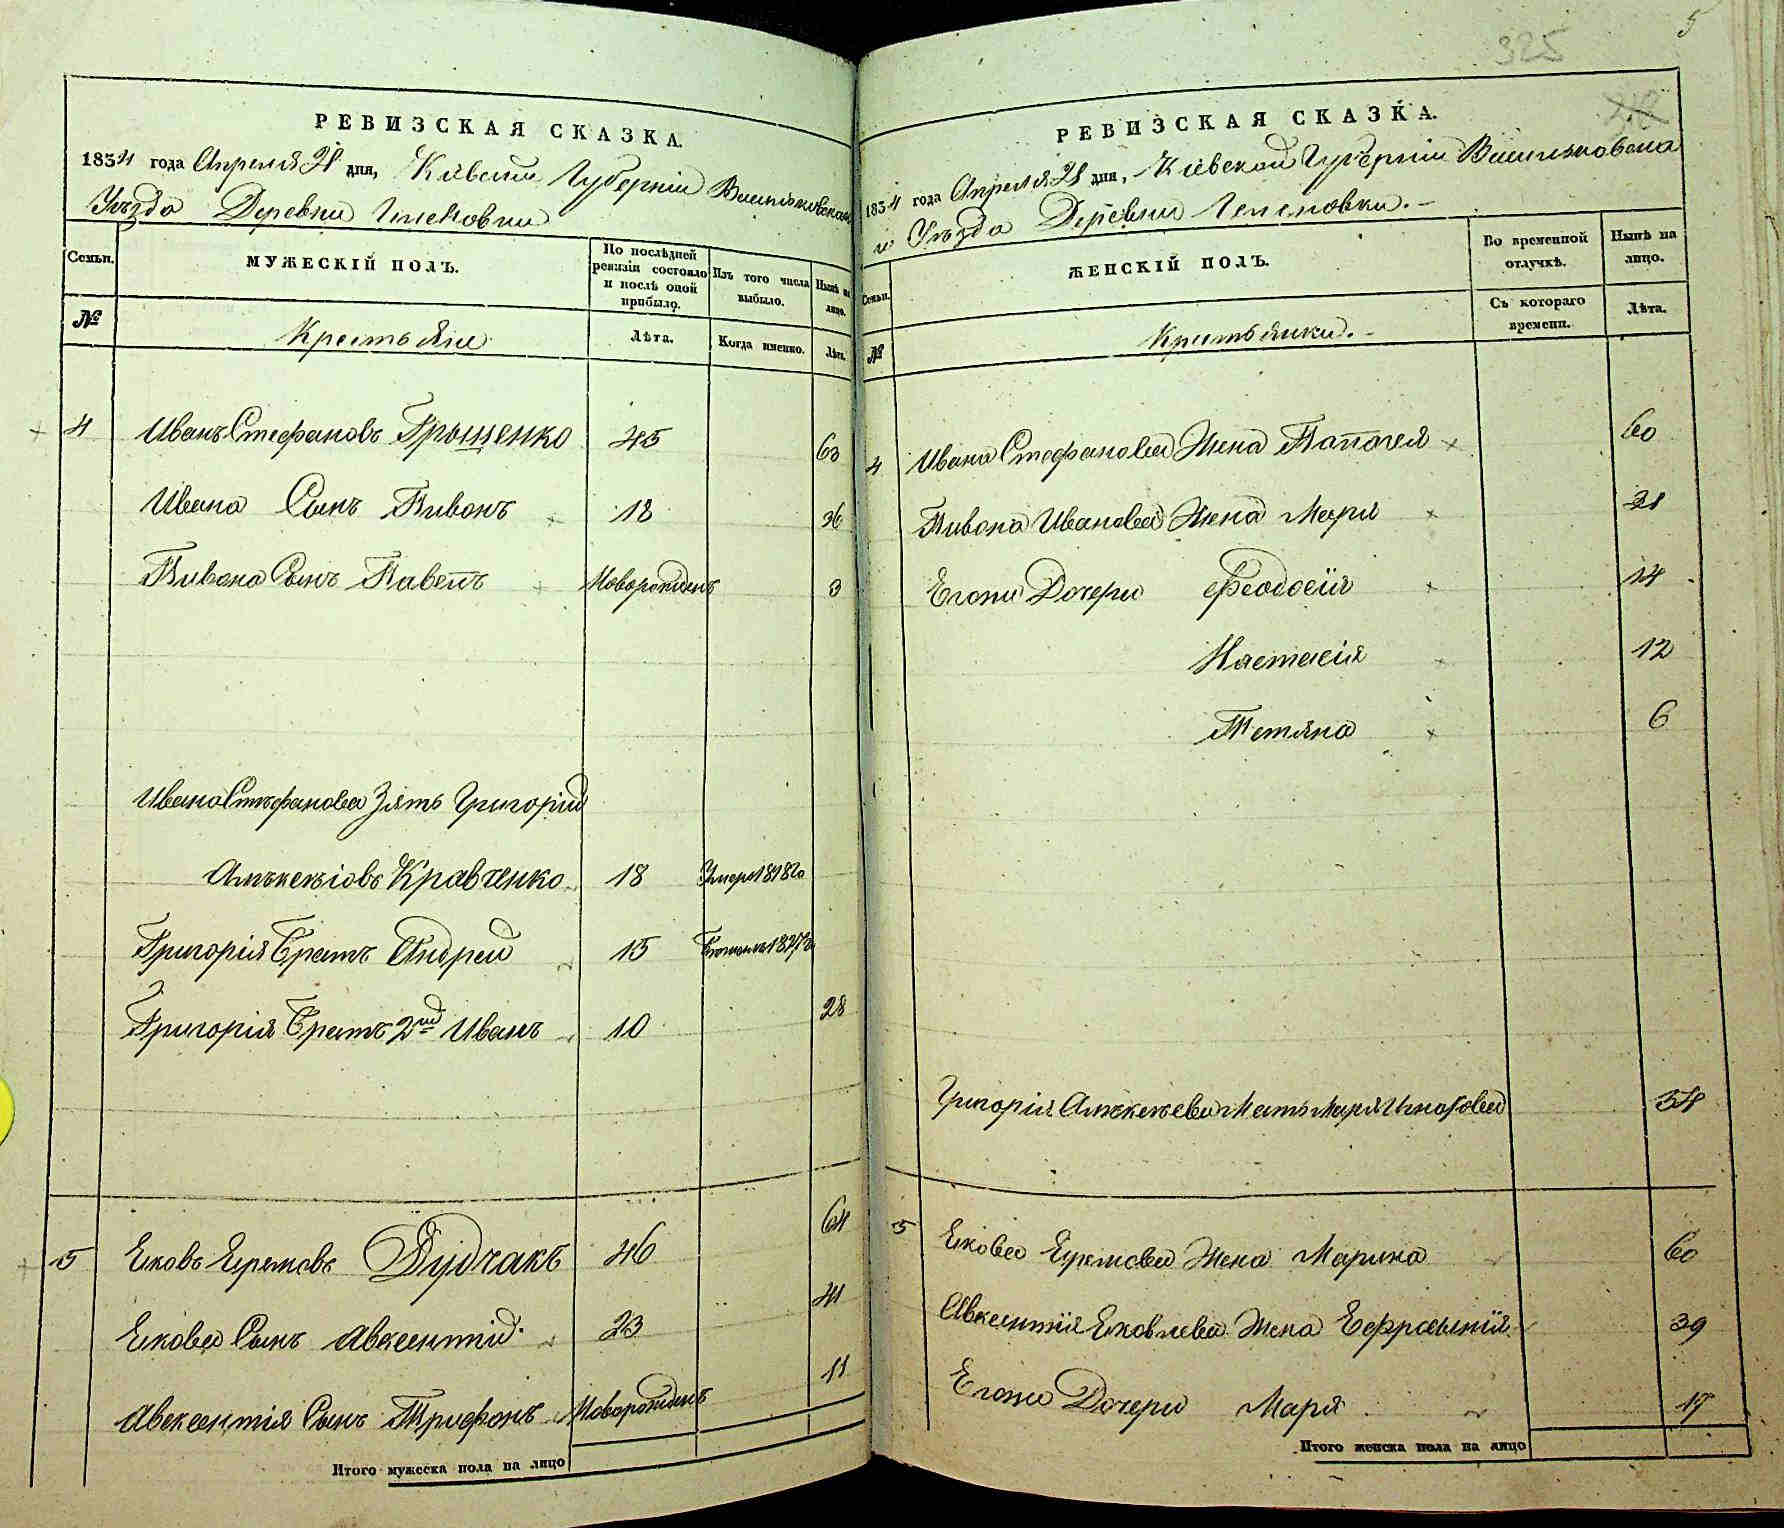 РЕВИЗСКАЯ СКАЗКА.
1834 года Апреля 28 дня, Кіевской Губерніи Васильковскаго
Уѣзда Деревни
Семьи.
МУЖЕСКІЙ ПОЛЪ.
По послѣдней ревизіи состояло и послѣ оной прибыло.
Изъ того числа выбыло.
Нынѣ на лицо.
№
Крестьяне
Лѣта.
Когда именно.
Лѣта.
4 Иванъ Стефановъ Грыщенко 45 63
Ивана Сынъ Пивонъ 18 36
Пивона Сынъ Павелъ Новорожденъ 3
Ивана Стефанова Зять Григорій
Алексѣіовъ Кравченко 18 Умеръ 1818го
Григорія Братъ Андрей 15
Григорія Братъ 2й Иванъ 10 28
5 Яковъ Яремовъ Дудчакъ 46 64
Якова Сынъ Авксентій 23 41
Авксентія Сынъ Трифонъ Новорожденъ 11
Итого мужеска пола на лицо
5
325
РЕВИЗСКАЯ СКАЗКА.
1834 года Апреля 28 дня, Кіевской Губерніи Васильковска
го Уѣзда Деревни
Семьи.
ЖЕНСКІЙ ПОЛЪ.
Во временной отлучкѣ.
Нынѣ на лицо.
№
Крестьянки.
Съ котораго времени.
Лѣта.
4 Ивана Стефанова Жена Палагея 60
Пивона Иванова Жена Маря
Єгожъ Дочери Феодосія 14
Настасія 12
Тетяна 6
Григорія Алексѣева Мать Маря Игнатова 54
5 Якова Яремова Жена Марина 60
Авксентія Яковлева Жена Евфросинія 39
Єгожъ Дочери Маря 17
Итого женска пола на лицо